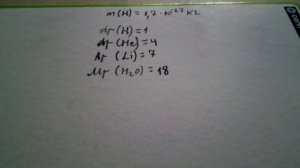 m(H) = 1,7 · 10²⁷ кг
Ar (H) = 1
Ar (He) = 4
Ar (Li) = 7
Mr (H₂O) = 18